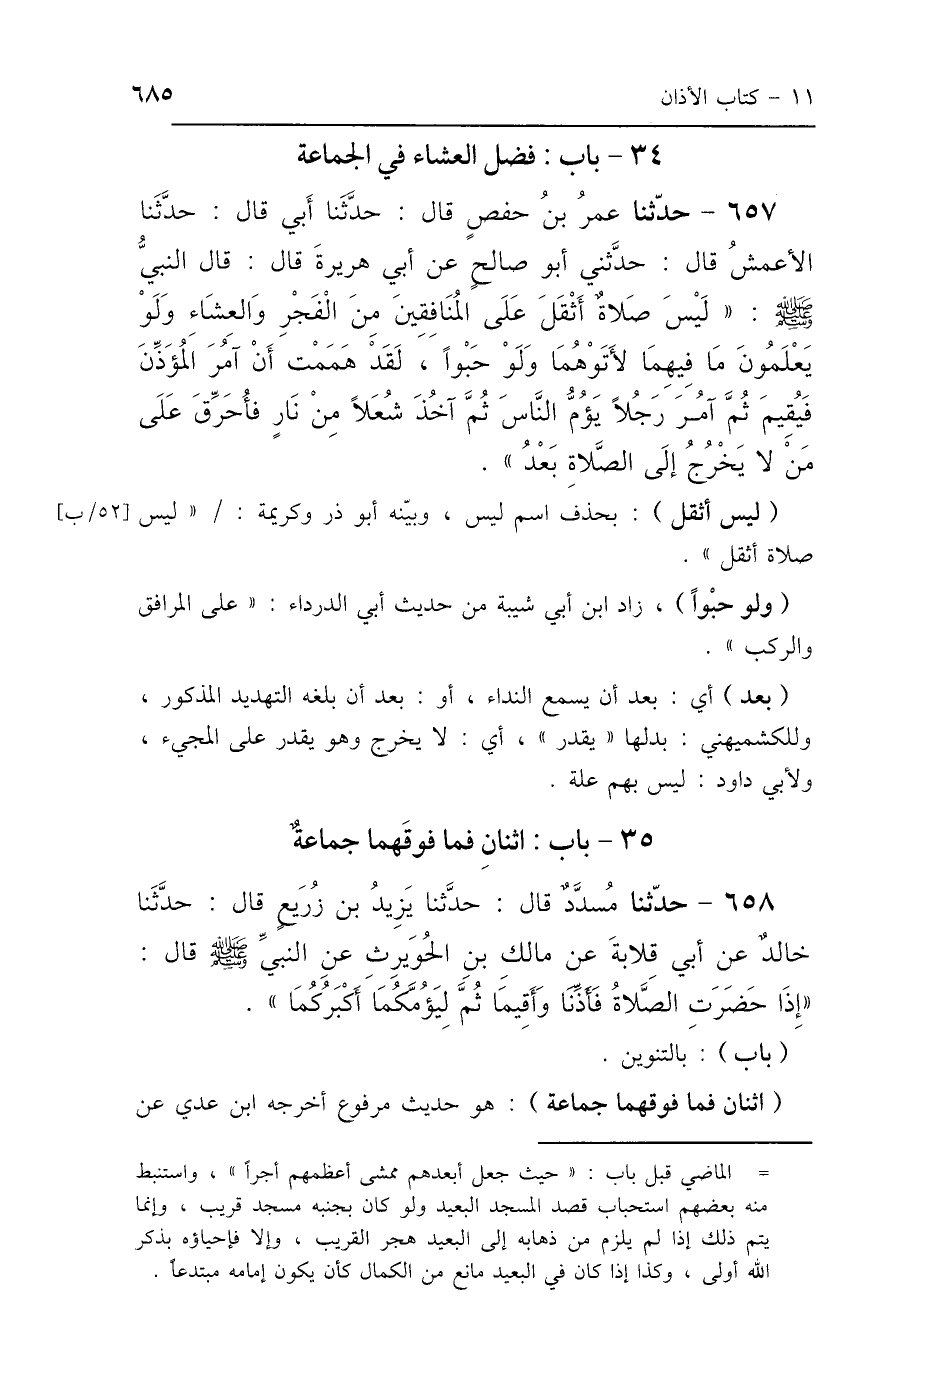 ١١ - كتاب الأذان ٦٨٥
٣٤ - باب : فضل العشاء في الجماعة
٦٥٧ - حدّثنا عمرُ بنُ حفصٍ قال : حدَّثَنا أَبي قال : حدَّثَنا
الأعمشُ قال : حدَّثني أبو صالحٍ عن أبي هريرةَ قال : قال النبيُّ
ﷺ : « لَيْسَ صَلاةٌ أَثْقَلَ عَلَى الْمُنَافِقِينَ مِنَ الْفَجْرِ وَالعِشَاءِ وَلَوْ
يَعْلَمُونَ مَا فِيهِمَا لأَتَوْهُمَا وَلَوْ حَبْواً ، لَقَدْ هَمَمْت أَنْ آمُرَ الْمُؤَذِّنَ
فَيُقِيمَ ثُمَّ آمُرَ رَجُلاً يَؤُمُّ النَّاسَ ثُمَّ آخُذَ شُعَلاً مِنْ نَارٍ فأُحَرِّقَ عَلَى
مَنْ لا يَخْرُجُ إِلَى الصَّلاةِ بَعْدُ » .
( ليس أثقل ) : بحذف اسم ليس ، وبيّنه أبو ذر وكريمة : / « ليس [٥٢/ب]
صلاة أثقل » .
( ولو حبْواً ) ، زاد ابن أبي شيبة من حديث أبي الدرداء : « على المرافق
والركب » .
( بعد ) أي : بعد أن يسمع النداء ، أو : بعد أن بلغه التهديد المذكور ،
وللكشميهني : بدلها « يقدر » ، أي : لا يخرج وهو يقدر على المجيء ،
ولأبي داود : ليس بهم علة .
٣٥ - باب : اثنانِ فما فوقَهما جماعةٌ
٦٥٨ - حدّثنا مُسدَّدٌ قال : حدَّثَنا يَزِيدُ بن زُرَيعٍ قال : حدَّثَنا
خالدٌ عن أبي قِلابةَ عن مالكِ بنِ الحُوَيرِثِ عنِ النبيِّ ﷺ قال :
«إِذَا حَضَرَتِ الصَّلاةُ فَأَذِّنَا وَأَقِيمَا ثُمَّ لِيَؤُمَّكُمَا أَكْبَرُكُمَا » .
( باب ) : بالتنوين .
( اثنان فما فوقهما جماعة ) : هو حديث مرفوع أخرجه ابن عدي عن
= الماضي قبل باب : « حيث جعل أبعدهم ممشى أعظمهم أجراً » ، واستنبط
منه بعضهم استحباب قصد المسجد البعيد ولو كان بجنبه مسجد قريب ، وإنما
يتم ذلك إذا لم يلزم من ذهابه إلى البعيد هجر القريب ، وإلا فإحياؤه بذكر
الله أولى ، وكذا إذا كان في البعيد مانع من الكمال كأن يكون إمامه مبتدعاً .